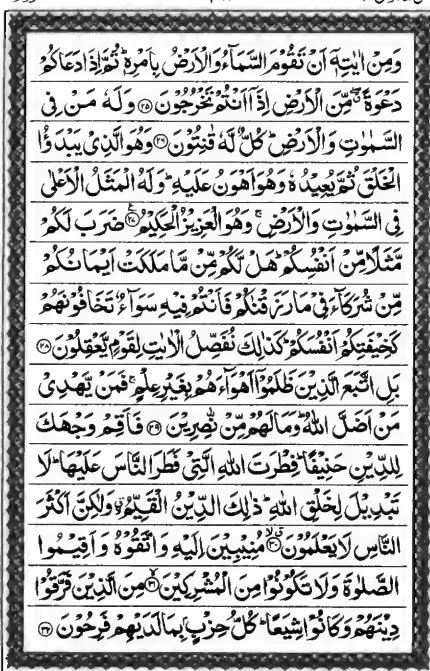 وَمِنْ اٰيٰتِهٖٓ اَنْ تَقُوْمَ السَّمَآءُ وَالْاَرْضُ بِاَمْرِهٖ ؕ ثُمَّ اِذَا دَعَاكُمْ
دَعْوَةً ۖ مِّنَ الْاَرْضِ اِذَآ اَنْتُمْ تَخْرُجُوْنَ ۝۲۵ وَلَهٗ مَنْ فِي
السَّمٰوٰتِ وَالْاَرْضِ ؕ كُلٌّ لَّهٗ قٰنِتُوْنَ ۝۲۶ وَهُوَ الَّذِيْ يَبْدَؤُا
الْخَلْقَ ثُمَّ يُعِيْدُهٗ وَهُوَ اَهْوَنُ عَلَيْهِ ؕ وَلَهُ الْمَثَلُ الْاَعْلٰى
فِي السَّمٰوٰتِ وَالْاَرْضِ ۚ وَهُوَ الْعَزِيْزُ الْحَكِيْمُ ۝۲۷ ضَرَبَ لَكُمْ
مَّثَلًا مِّنْ اَنْفُسِكُمْ ؕ هَلْ لَّكُمْ مِّنْ مَّا مَلَكَتْ اَيْمَانُكُمْ
مِّنْ شُرَكَآءَ فِيْ مَا رَزَقْنٰكُمْ فَاَنْتُمْ فِيْهِ سَوَآءٌ تَخَافُوْنَهُمْ
كَخِيْفَتِكُمْ اَنْفُسَكُمْ ؕ كَذٰلِكَ نُفَصِّلُ الْاٰيٰتِ لِقَوْمٍ يَّعْقِلُوْنَ ۝۲۸
بَلِ اتَّبَعَ الَّذِيْنَ ظَلَمُوْٓا اَهْوَآءَهُمْ بِغَيْرِ عِلْمٍ ۚ فَمَنْ يَّهْدِيْ
مَنْ اَضَلَّ اللّٰهُ ؕ وَمَا لَهُمْ مِّنْ نّٰصِرِيْنَ ۝۲۹ فَاَقِمْ وَجْهَكَ
لِلدِّيْنِ حَنِيْفًا ؕ فِطْرَتَ اللّٰهِ الَّتِيْ فَطَرَ النَّاسَ عَلَيْهَا ؕ لَا
تَبْدِيْلَ لِخَلْقِ اللّٰهِ ؕ ذٰلِكَ الدِّيْنُ الْقَيِّمُ ۙ وَلٰكِنَّ اَكْثَرَ
النَّاسِ لَا يَعْلَمُوْنَ ۝۳۰ مُنِيْبِيْنَ اِلَيْهِ وَاتَّقُوْهُ وَاَقِيْمُوا
الصَّلٰوةَ وَلَا تَكُوْنُوْا مِنَ الْمُشْرِكِيْنَ ۝۳۱ مِنَ الَّذِيْنَ فَرَّقُوْا
دِيْنَهُمْ وَكَانُوْا شِيَعًا ؕ كُلُّ حِزْبٍۭ بِمَا لَدَيْهِمْ فَرِحُوْنَ ۝۳۲